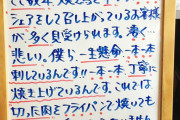 シェアをして召し上がっているお客様
が多く見受けられます。凄く
悲しい。僕ら一生懸命一本一本
刺しているんです!!一本一本丁寧に
焼き上げているんです。これでは
切った肉をフライパンで焼いても